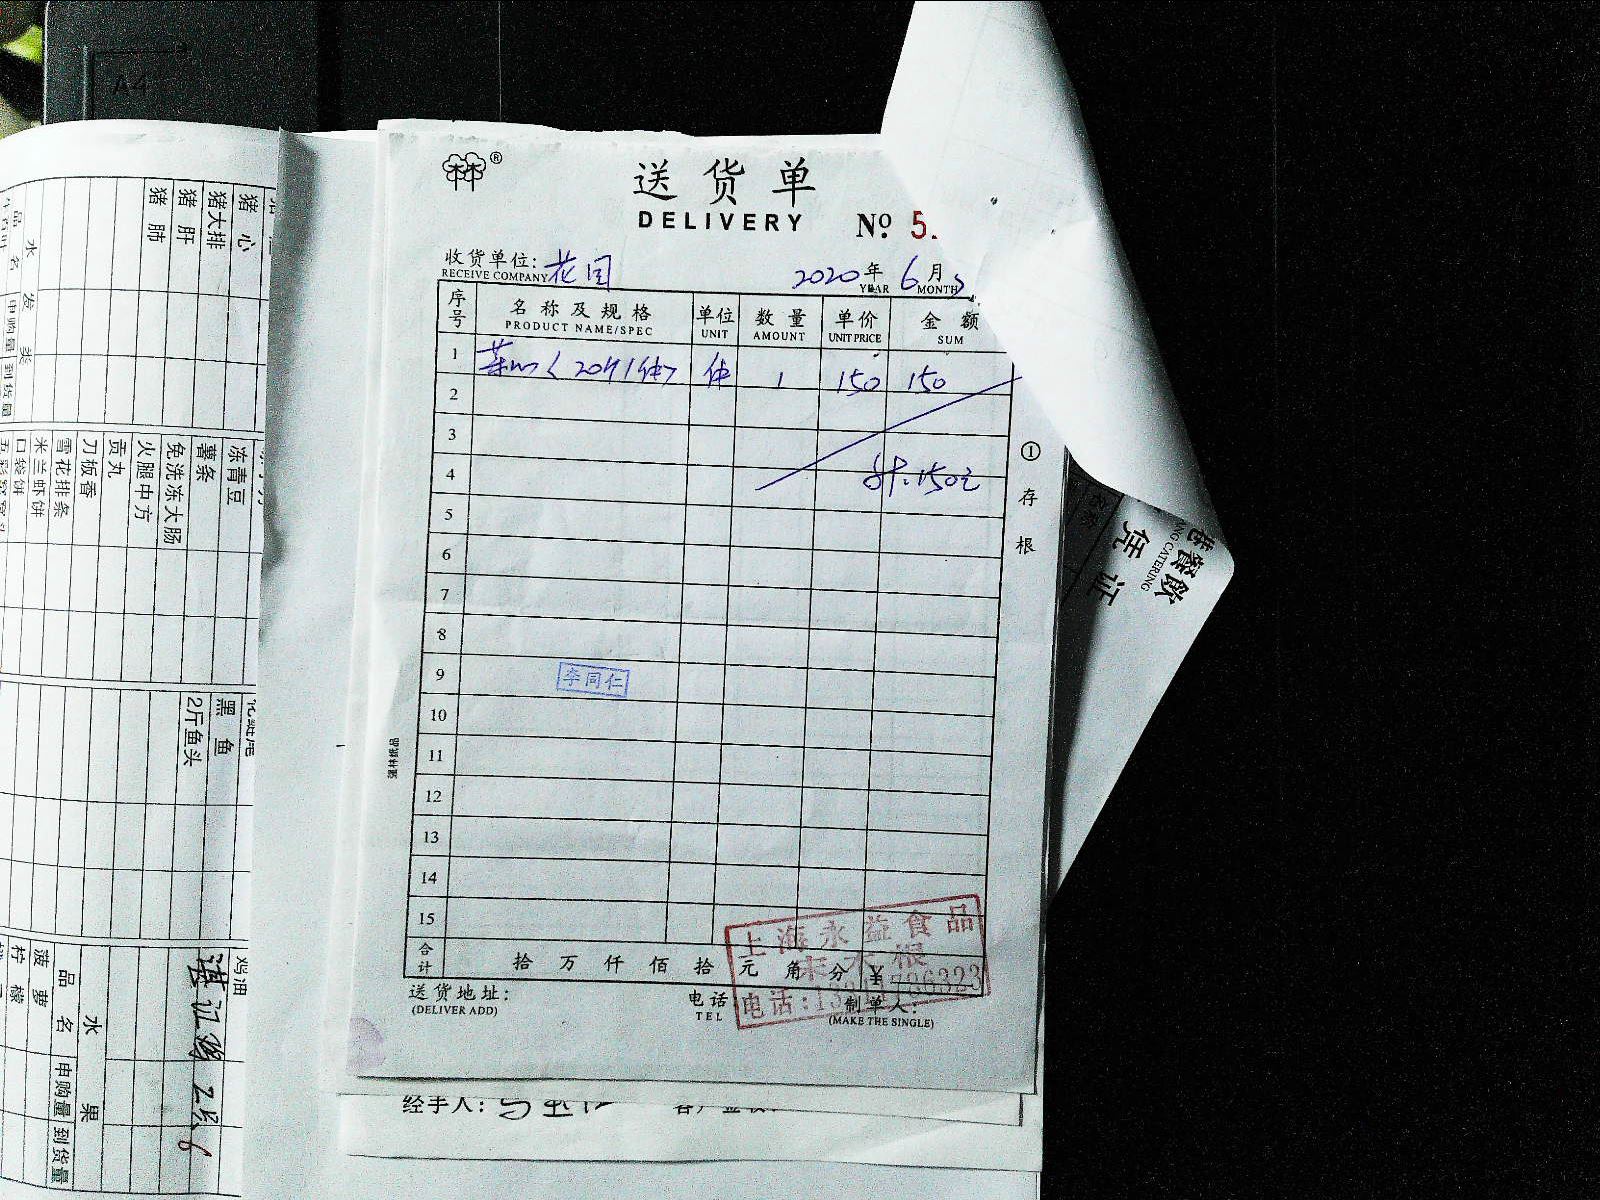 送货单
DELIVERY
№ 5.
收货单位: 花园
RECEIVE COMPANY
2020年 6月
YEAR MONTH
序号 名称及规格 单位 数量 单价 金额
PRODUCT NAME/SPEC UNIT AMOUNT UNIT PRICE SUM
1 件 1 150 150
2
3
4 计:150元
5
6
7
8
9 李同仁
10
11
12
13
14
15
合计 拾万仟佰拾元角分 ¥
上海永益食品
电话:
送货地址:
(DELIVER ADD)
电话
TEL
制单人:
(MAKE THE SINGLE)
①存根
强林纸品
经手人:
餐饮
NG CATERING
凭证
A4
猪心
猪大排
猪肝
猪肺
水发类
品名
申购量
到货量
冻青豆
薯条
免洗冻大肠
火腿中方
贡丸
刀板香
雪花排条
米兰虾饼
口袋饼
黑鱼
2斤鱼头
鸡油
水果
品名
申购量
到货量
菠萝
柠檬